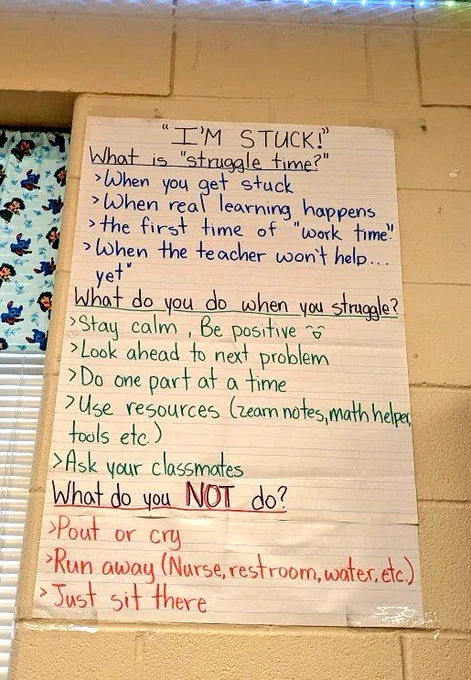 "I'M STUCK!"
What is "struggle time?"
>When you get stuck
>When real learning happens
>the first time of "work time"!
>When the teacher won't help...
yet"
What do you do when you struggle?
>Stay calm, Be positive
>Look ahead to next problem
>Do one part at a time
>Use resources (zearn notes, math helper,
tools etc.)
>Ask your classmates
What do you NOT do?
>Pout or cry
>Run away (Nurse, restroom, water, etc.)
>Just sit there